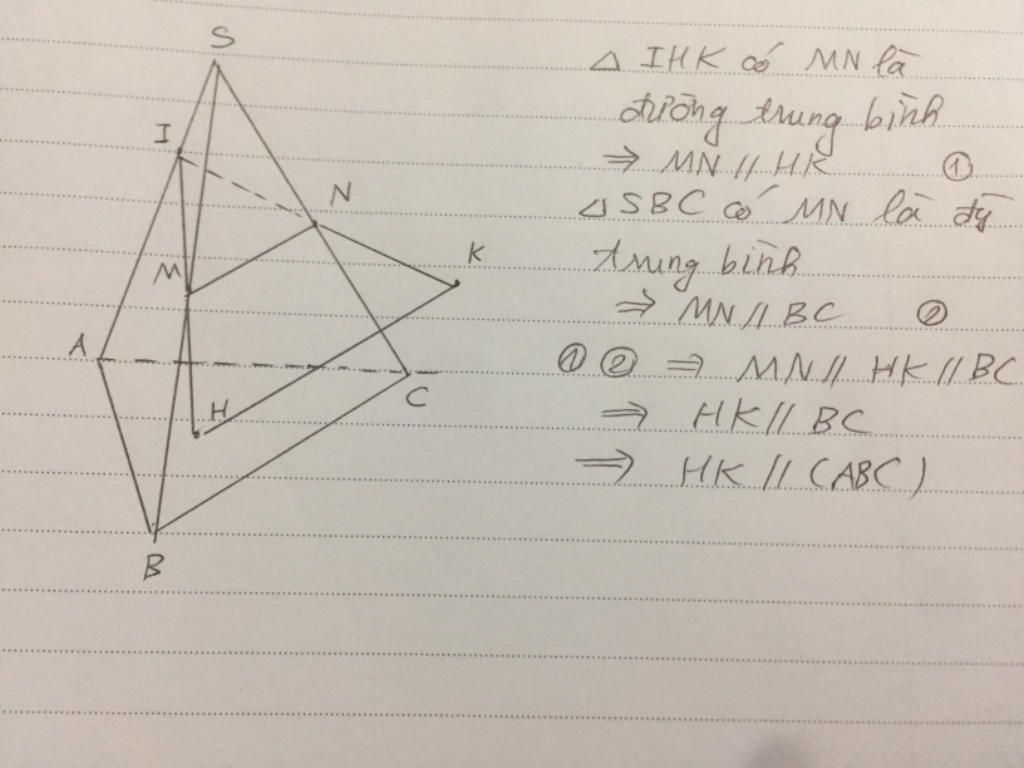 S
I
N
K
M
A
H
C
B
△ IHK có MN là
đường trung bình
⇒ MN // HK ①
△ SBC có MN là đg
trung bình
⇒ MN // BC ②
① ② ⇒ MN // HK // BC
⇒ HK // BC
⇒ HK // (ABC)